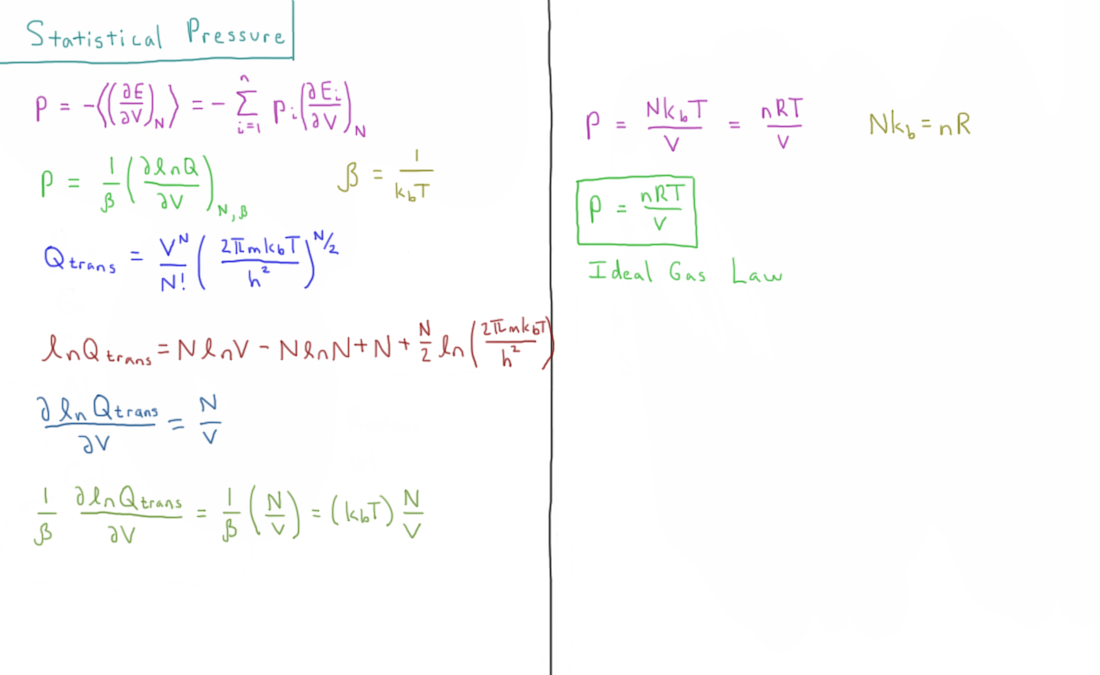 Statistical Pressure
P = -⟨(∂E/∂V)_N⟩ = -∑_{i=1}^{n} p_i(∂E_i/∂V)_N
P = 1/β (∂lnQ/∂V)_{N,β}   β = 1/(k_bT)
Q_trans = V^N/N! (2πmk_bT/h²)^{N/2}
lnQ_trans = NlnV - NlnN + N + N/2 ln(2πmk_bT/h²)
∂lnQ_trans/∂V = N/V
1/β ∂lnQ_trans/∂V = 1/β (N/V) = (k_bT) N/V
P = Nk_bT/V = nRT/V   Nk_b = nR
P = nRT/V
Ideal Gas Law